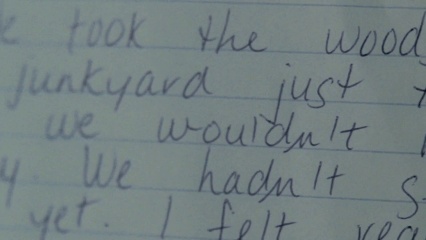 took the wood
junkyard just
we wouldn't
We hadn't
yet. I felt